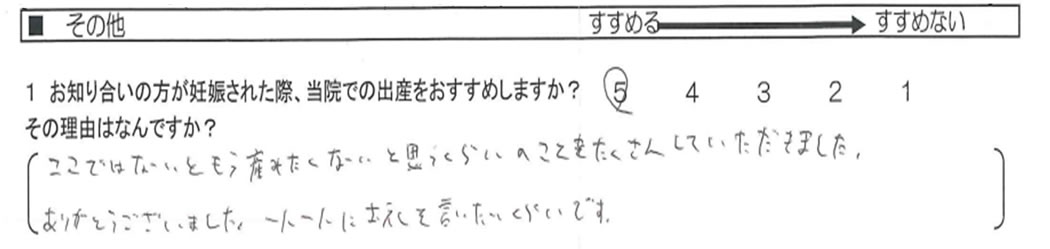 ■ その他 すすめる すすめない
1 お知り合いの方が妊娠された際、当院での出産をおすすめしますか? 5 4 3 2 1
その理由はなんですか?
ここではないともう産みたくないと思うくらいのことをたくさんしていただきました。
ありがとうございました。一人一人にお礼を言いたいくらいです。